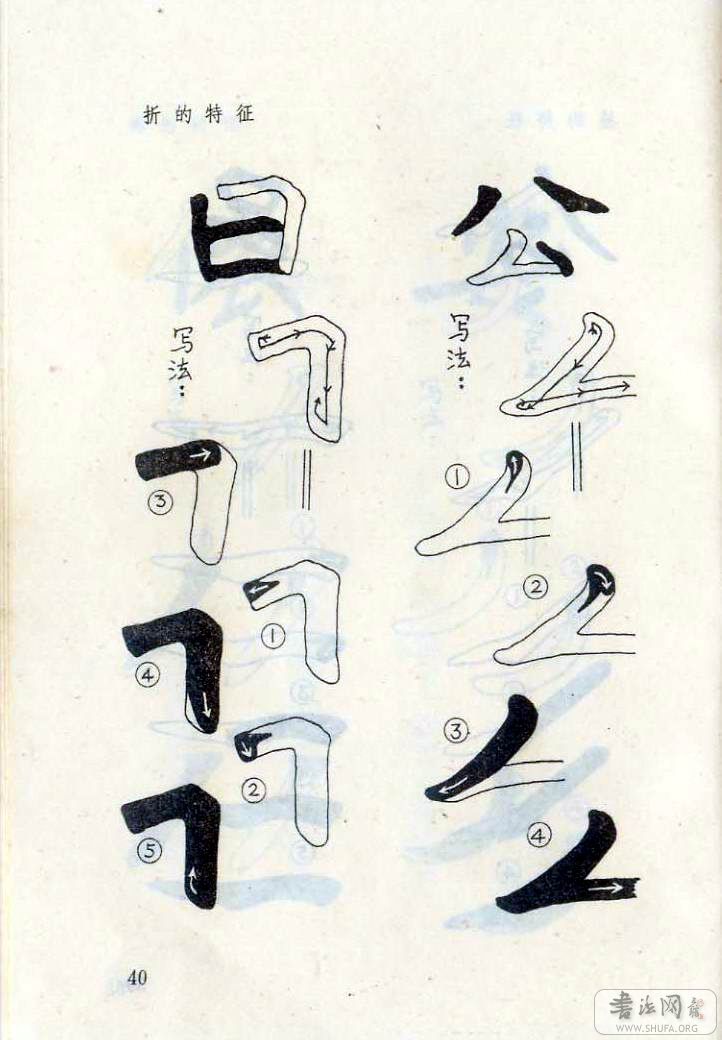 折的特征
公
写法：
①
②
③
④
日
写法：
①
②
③
④
⑤
40
书法网
WWW.SHUFA.ORG